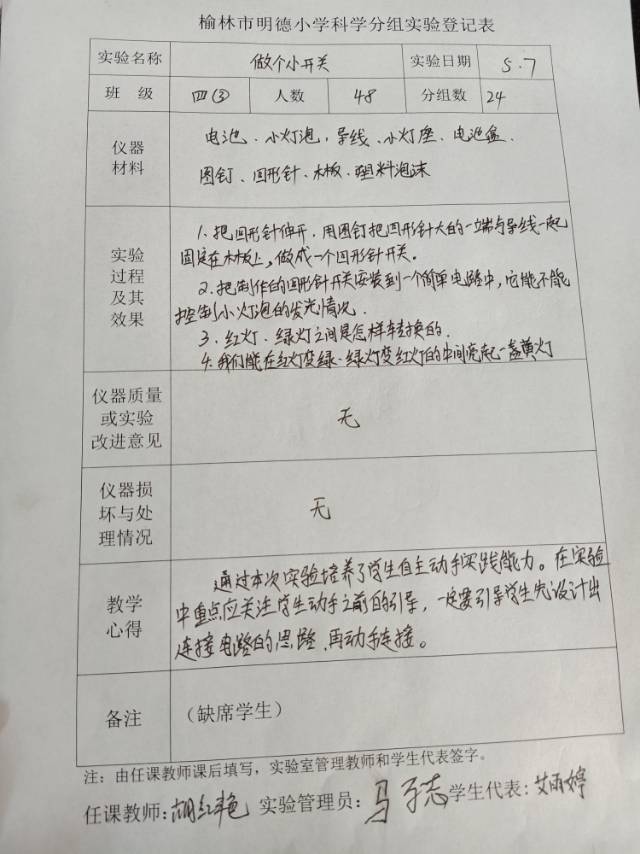 榆林市明德小学科学分组实验登记表
实验名称 做个小开关 实验日期 5.7
班 级 四③ 人数 48 分组数 24
仪器
材料
电池、小灯泡,导线、小灯座、电池盒、
图钉、回形针、木板、塑料泡沫
实验
过程
及其
效果
1、把回形针伸开,用图钉把回形针大的一端与导线一起
固定在木板上,做成一个回形针开关。
2、把制作的回形针开关安装到一个简单电路中,它能不能
控制小灯泡的发光情况.
3、红灯、绿灯之间是怎样转换的.
4、我们能在红灯变绿、绿灯变红灯的中间亮起一盏黄灯
仪器质量
或实验
改进意见
无
仪器损
坏与处
理情况
无
教学
心得
通过本次实验培养了学生自主动手实践能力。在实验
中重点应关注学生动手之前的引导,一定要引导学生先设计出
连接电路的思路,再动手连接。
备注 (缺席学生)
注:由任课教师课后填写,实验室管理教师和学生代表签字。
任课教师:胡红艳 实验管理员:马子志 学生代表:艾雨婷